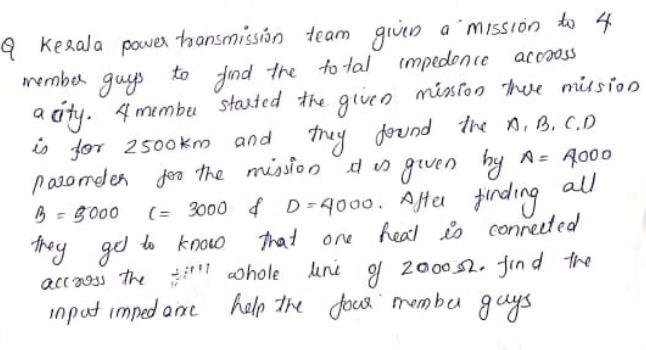 Q Kerala power transmission team given a mission to 4
member guys to find the total impedence accross
a city. 4 member started the given mission there mission
is for 2500km and they found the A, B, C, D
parameter for the mission it is given by A = 4000
B = 3000 C = 3000 & D = 4000. After finding all
they get to know that one heat is connected
accross the whole line of 2000Ω. find the
input impedance help the four member guys